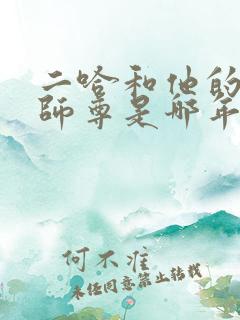 二哈和他的
師尊是哪年
何不淮
未经同意禁止转载